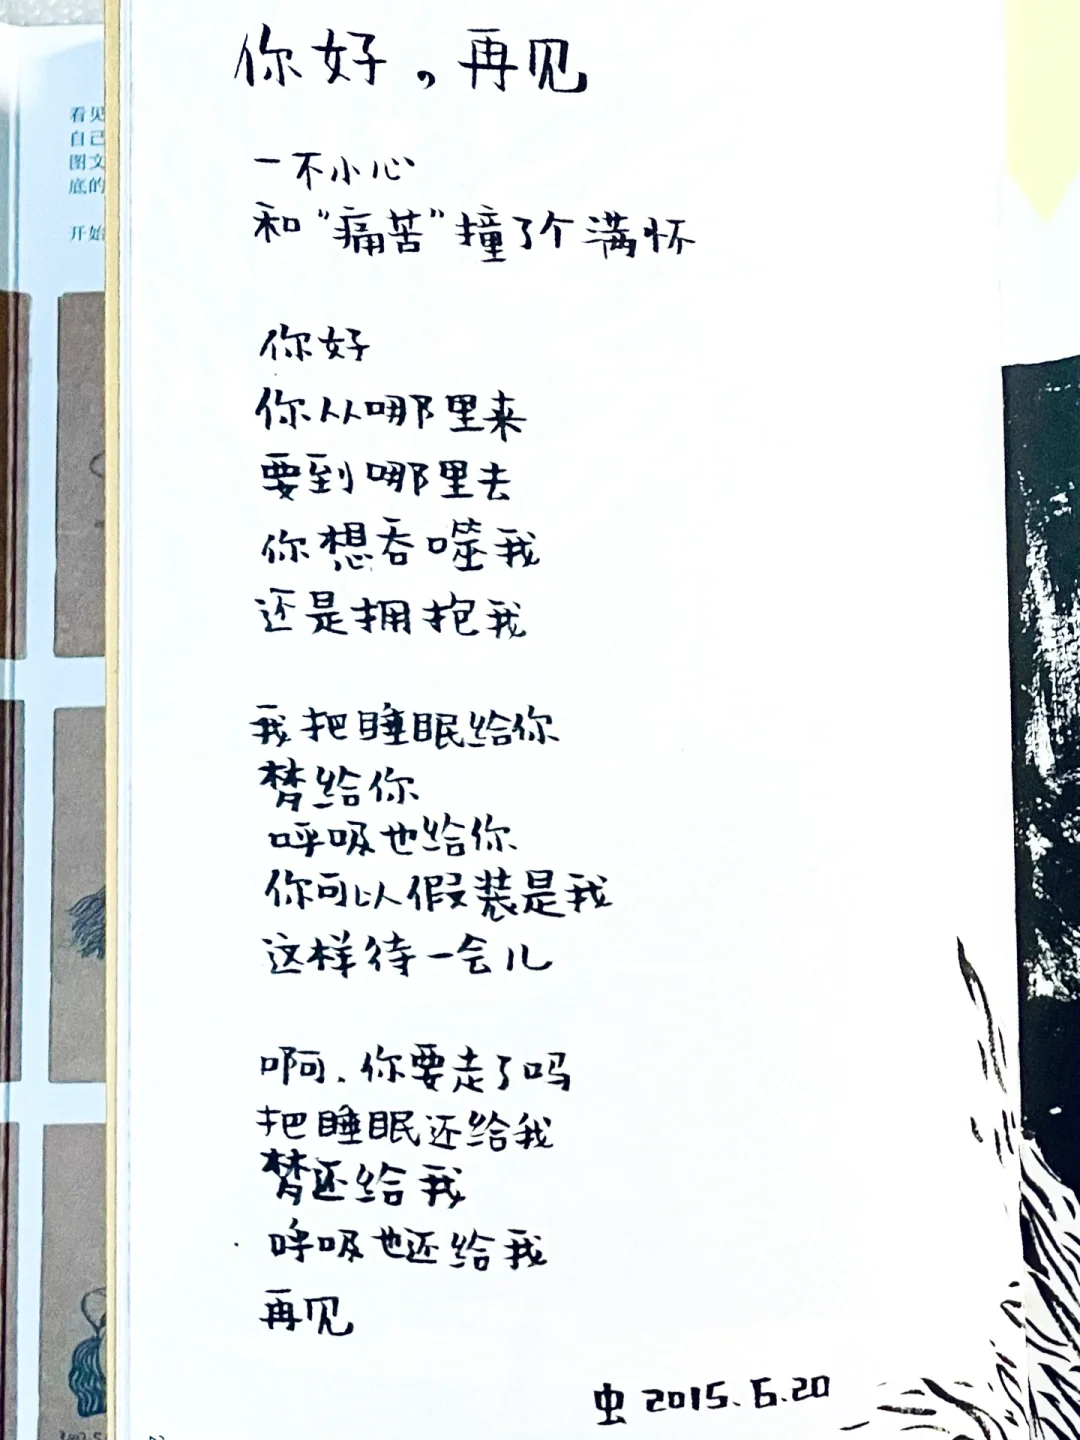 你好，再见
一不小心
和“痛苦”撞了个满怀
你好
你从哪里来
要到哪里去
你想吞噬我
还是拥抱我
我把睡眠给你
梦给你
呼吸也给你
你可以假装是我
这样待一会儿
啊，你要走了吗
把睡眠还给我
梦还给我
呼吸也还给我
再见
虫 2015.6.20
看见
自己
图文
底的
开始